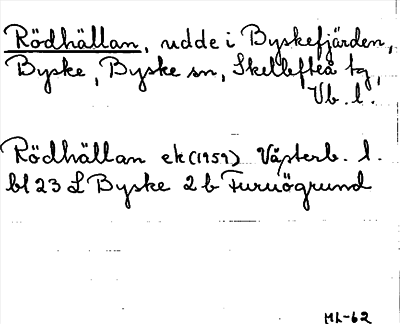 Rödhällan, udde i Byskefjärden,
Byske, Byske sn, Skellefteå tg,
Vb. l.
Rödhällan ek (1959) Västerb. l.
bl 23 L Byske 2 b Furuögrund
ML-62